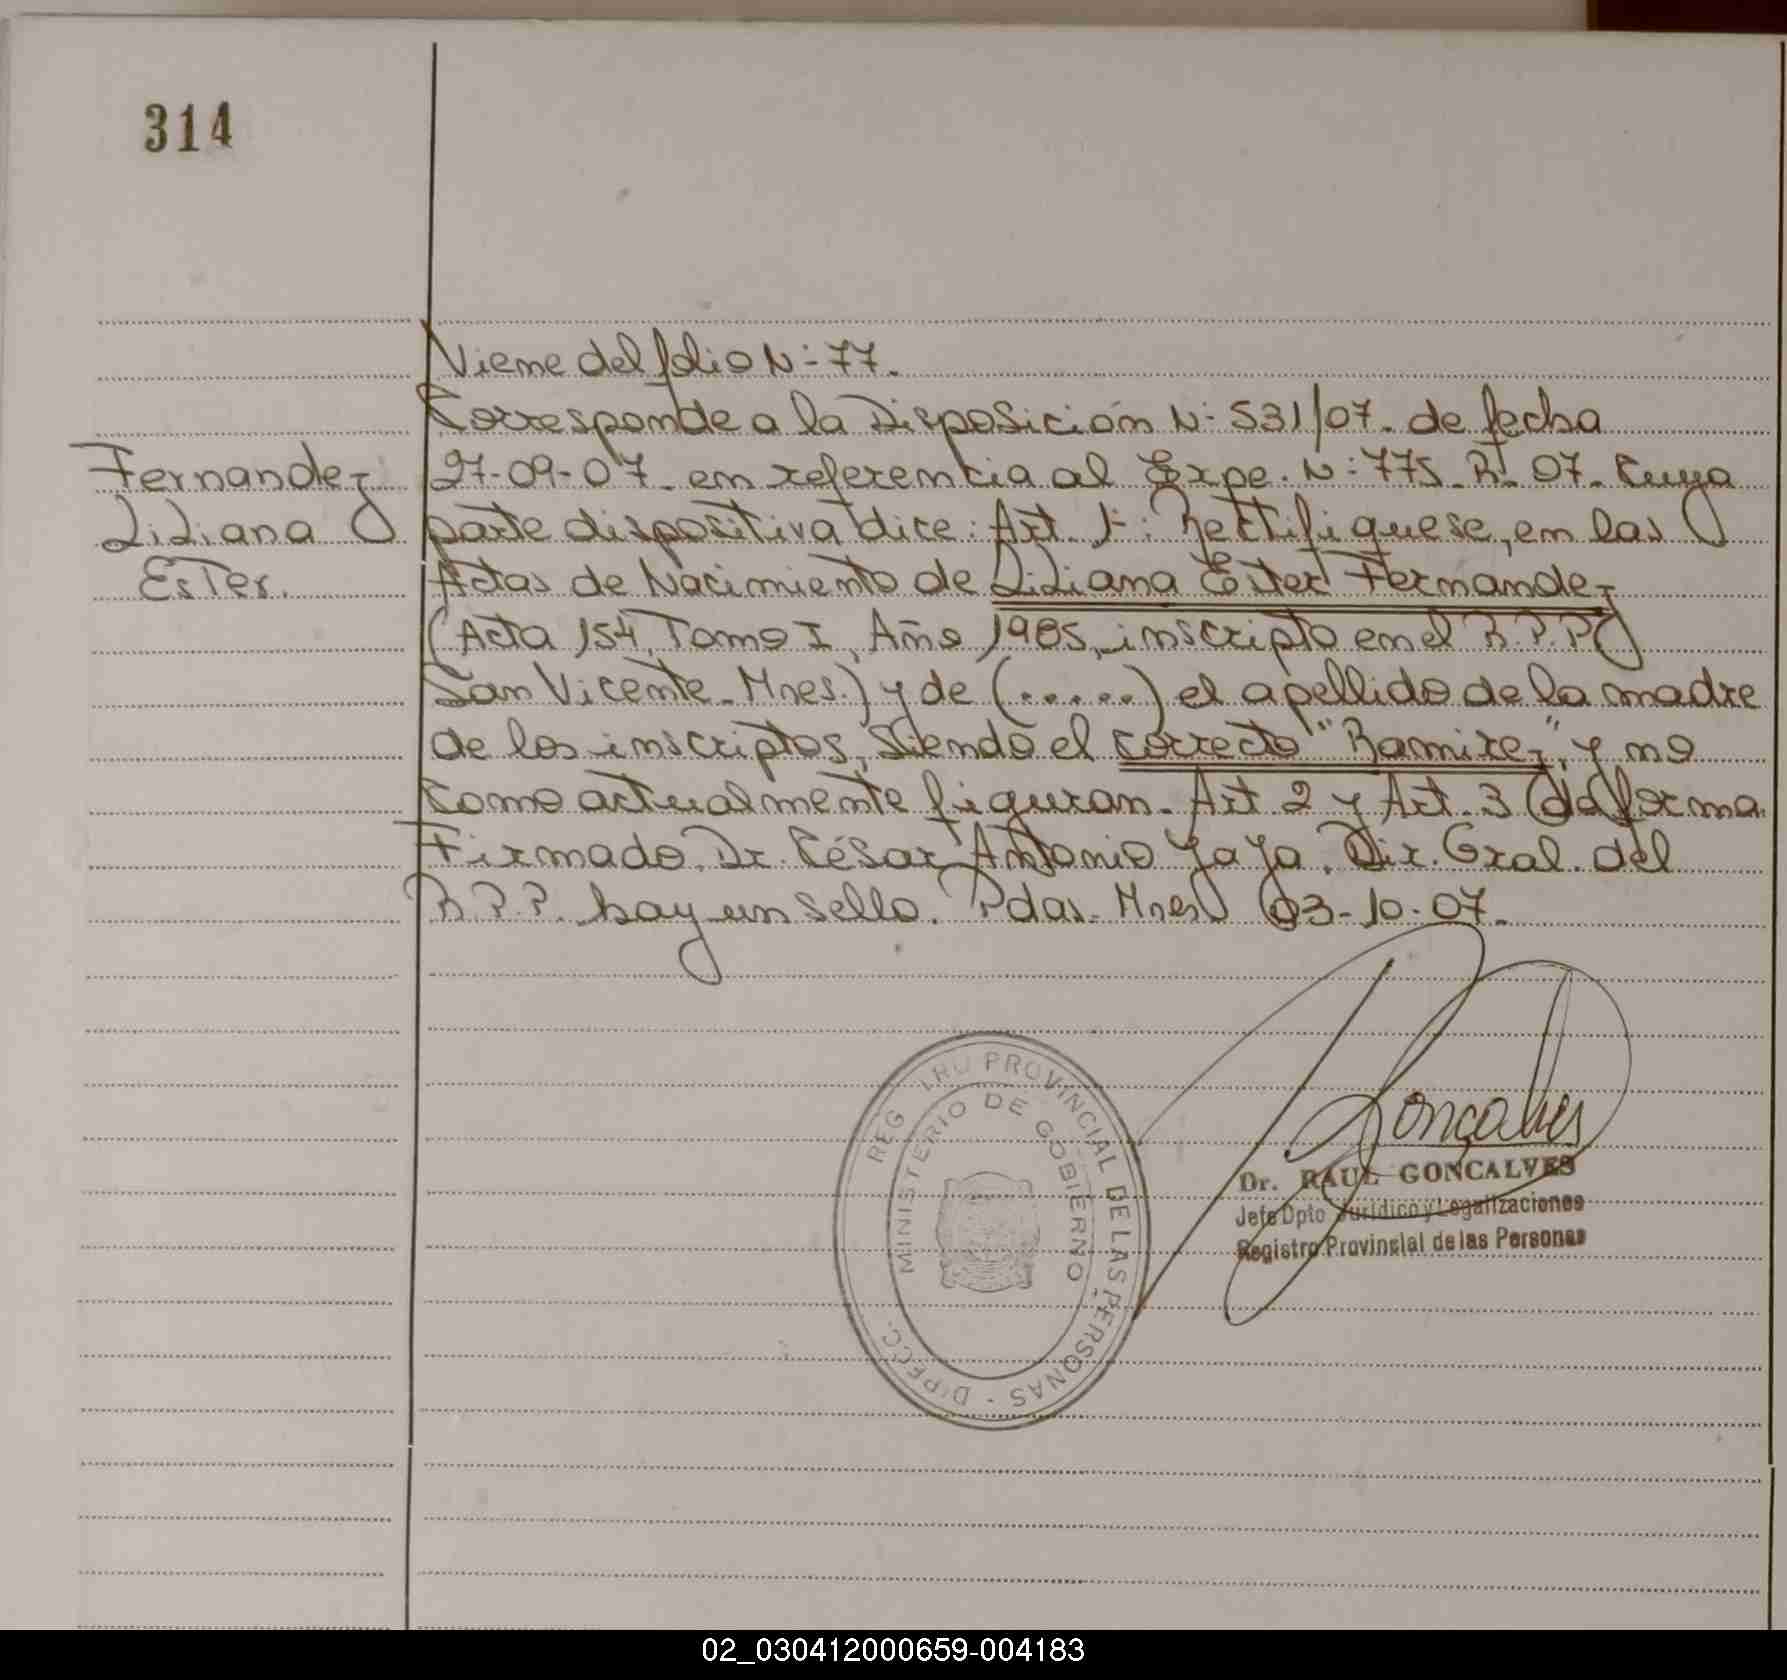 314
Viene del folio N:- 77.
Corresponde a la Disposición N:- 531/07. de fecha
Fernandez
27-09-07. en referencia al Expe. N:- 775. R. 07. Cuya
Liliana
parte dispositiva dice: Art. 1:- Rectifiquese, en las
Ester.
Actas de Nacimiento de Liliana Ester Fernandez
(Acta 154, Tomo I, Año 1985, inscripto en el R.P.P.
San Vicente - Mnes.) y de (......) el apellido de la madre
de los inscriptos, siendo el correcto "Ramirez", y no
como actualmente figuran. Art. 2 y Art. 3 de forma.
Firmado. Dr. César Antonio Yaya. Dir. Gral. del
R.P.P. hay un sello. Pdas. Mnes 03-10-07.
REGISTRO PROVINCIAL DE LAS PERSONAS - D'PECC.
MINISTERIO DE GOBIERNO
Goncalves
Dr. RAUL GONCALVES
Jefe Dpto Jurídico y Legalizaciones
Registro Provincial de las Personas
02_030412000659-004183